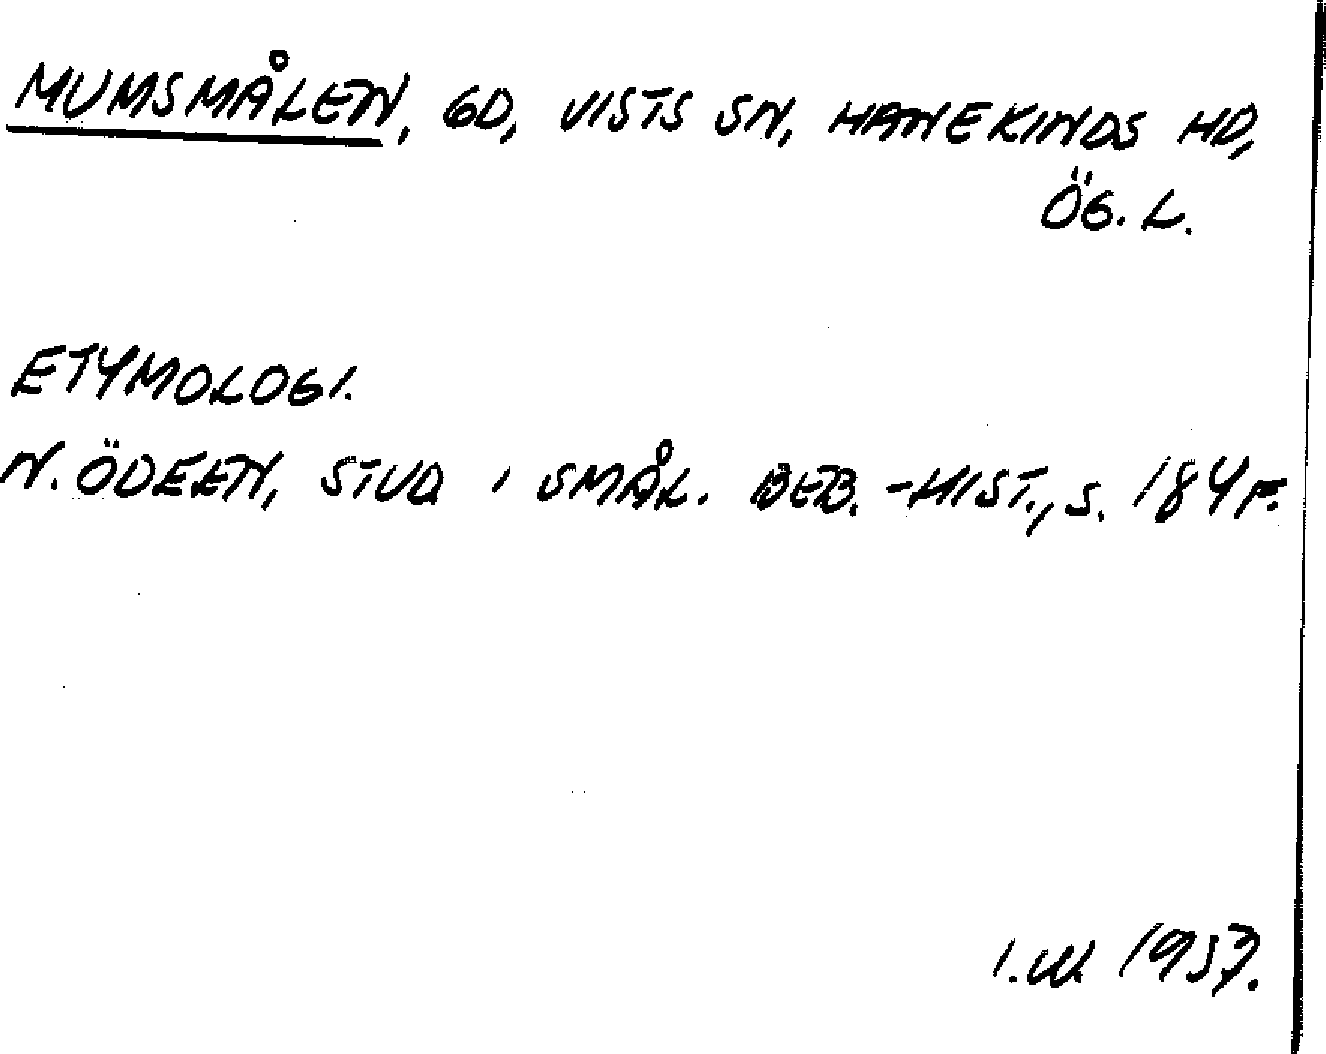 MUMSMÅLEN, GD, VISTS SN, HANEKINDS HD,
ÖG. L.
ETYMOLOGI.
N. ÖDEEN, STUD I SMÅL. BEB.-HIST., S. 184 F.
I.W. 1957.